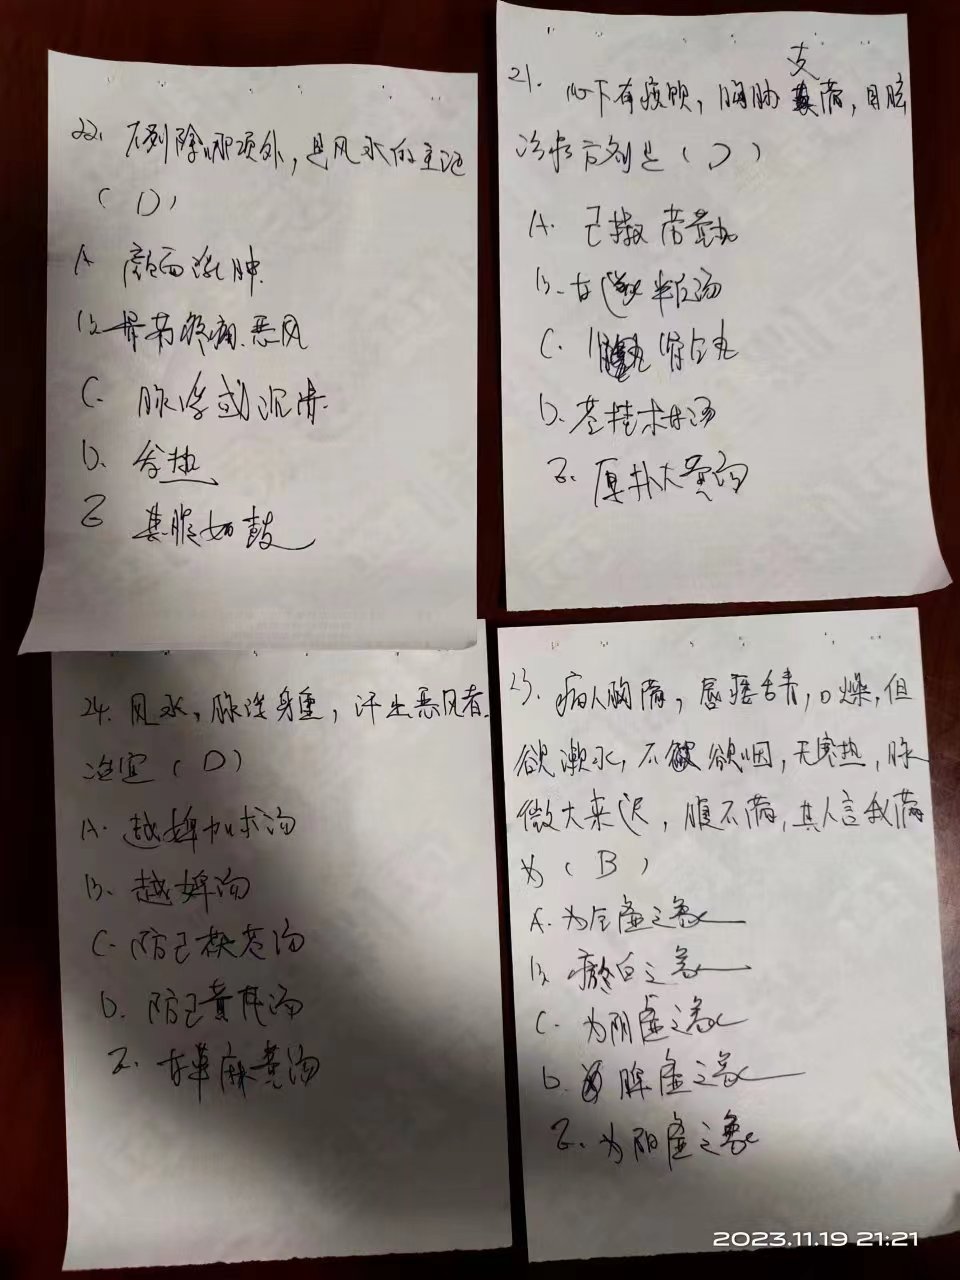 21. 心下有痰饮，胸胁支满，目眩
治疗方剂是（D）
A. 己椒苈黄丸
B. 甘遂半夏汤
C. 肾气丸
D. 苓桂术甘汤
E. 厚朴大黄汤
22. 下列除哪项外，是风水的主证
（D）
A 颜面浮肿
B 骨节疼痛.恶风
C. 脉浮或沉滑.
D. 发热
E 其腹如鼓
23. 病人胸满，唇痿舌青，口燥，但
欲漱水，不欲咽，无寒热，脉
微大来迟，腹不满，其人言我满
为（B）
A. 为气虚之象
B. 瘀血之象
C. 为阴虚之象
D. 脾虚之象
E. 为阳虚之象
24. 风水，脉浮身重，汗出恶风者.
治宜（D）
A. 越婢加术汤
B. 越婢汤
C. 防己茯苓汤
D. 防己黄芪汤
E. 甘草麻黄汤
2023.11.19 21:21